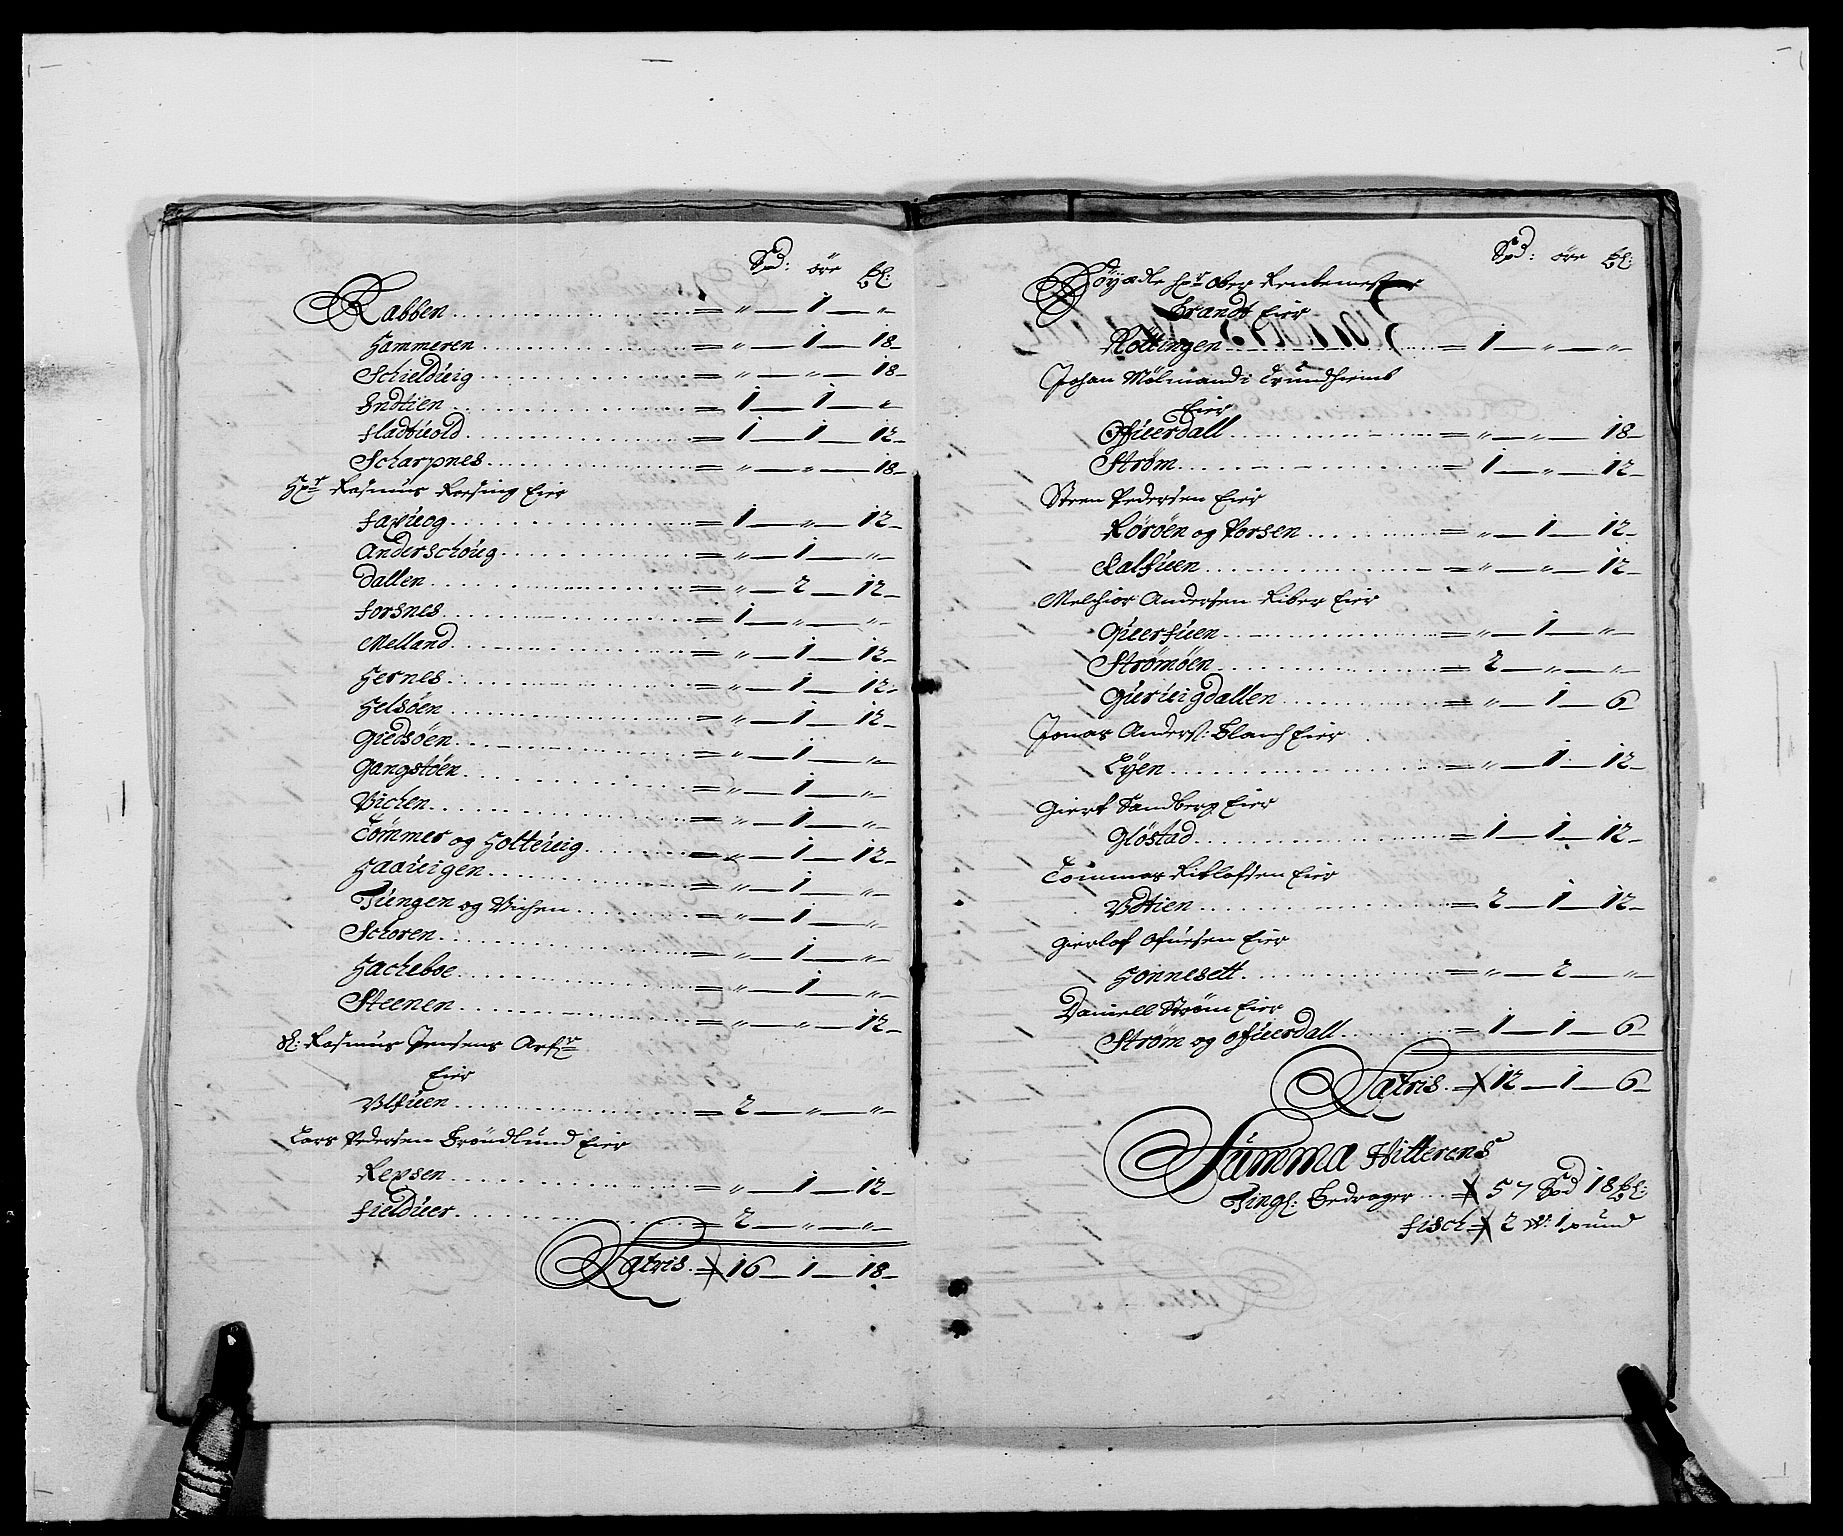 Spd: öre ꝟl:
Rabben = " 1 "
Hammeren = " 1 18
Schielduig = " " 18
Indtien = 1 1 "
Fladtuold = 1 1 12
Scharpnes = " " 18
Hr Rasmus Roesing Eier
Faxuog = 1 " 12
Anderschöug = " 1 "
Dallen = " 2 12
Forsnes = 1 " "
Melland = " 1 12
Hernes = " 1 12
Helsöen = " 1 12
Giedsöen = " 1 "
Gangstöen = " 1 "
Vichen = " 1 "
Tömmer og Holteuig = " 1 12
Haauigen = " 1 "
Tungen og Vichen = " 1 "
Schoren = " 1 "
Hacheboe = " 1 "
Steenen = " " 12
Sl: Rasmus Jensens Arfr
Eier
Ulfuen = 2 " "
Lars Pedersen Bröndlund Eier
Repsen = " 1 12
Fielduer = 2 " "
Latris = 16 1 18
Spd: öre
Höyædle Hr Ober Rentemester
Brandt Eier
Röttingen = 1 " "
Johan Mölmand i Trundhiemb
Eier
Ofuerdall = " " 18
Ström = 1 " 12
Steen Pedersen Eier
Röröen og Porsen = " 1 12
Kalfuen = " " 12
Melchior Andersen Riber Eier
Querfuen = " 1 "
Strömöen = 2 " "
Gieruigdallen = " 1 6
Jonas Anders: Blanch Eier
Eyen = " 1 12
Giert Sandberg Eier
Glöstad = 1 1 12
Tommas Ritlofsen Eier
Udtien = 2 1 12
Gierlof Ofuesen Eier
Honnesett = " 2 "
Daniell Ström Eier
Ström og Ofuerdall = 1 1 6
Latris = 12 1 6
Summa Hitterens
Tingl: Bedrager = 57 Spd 18
Fisch = 2 W: 1 pund